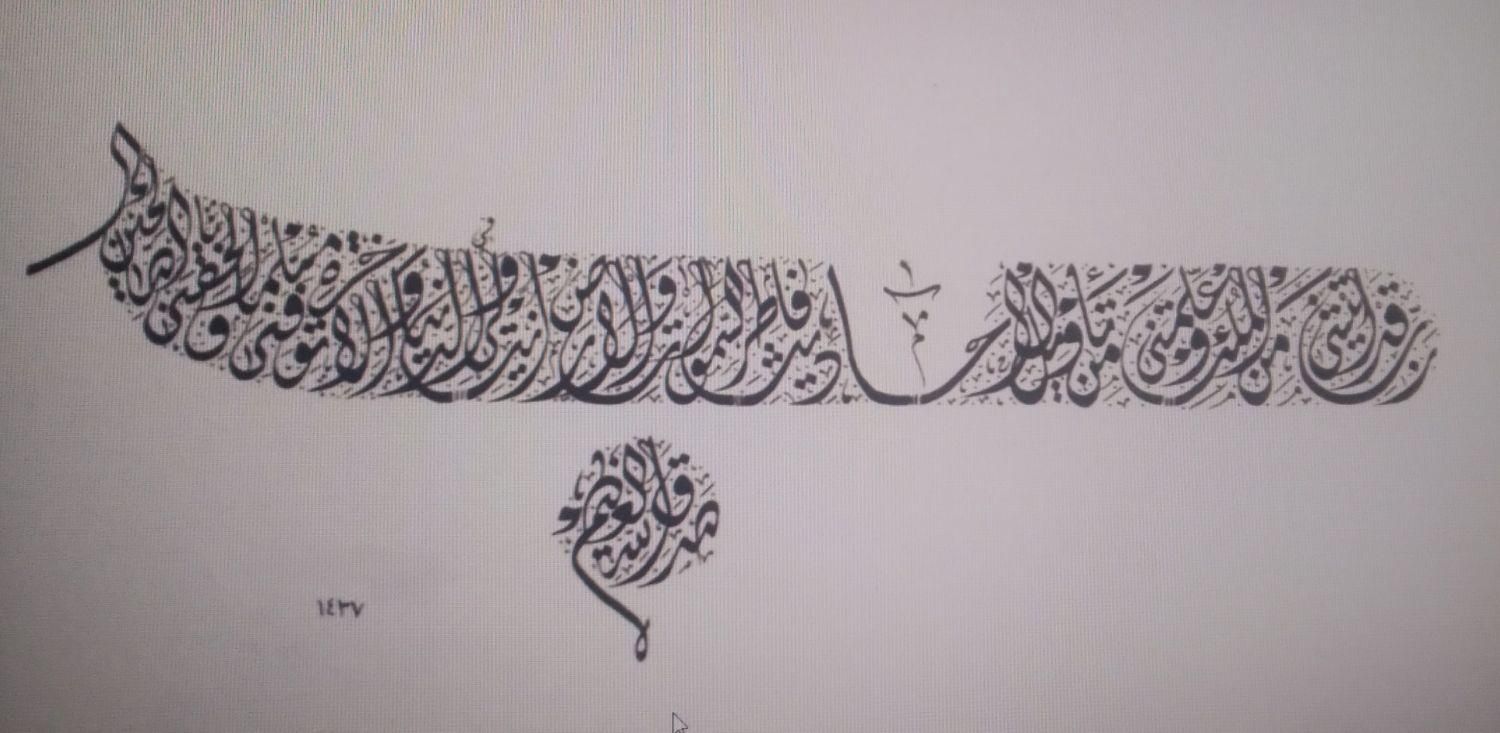 رب قد آتيتني من الملك وعلمتني من تأويل الأحاديث فاطر السموات والأرض أنت وليي في الدنيا والآخرة توفني مسلما وألحقني بالصالحين
صدق الله العظيم
١٤٣٧